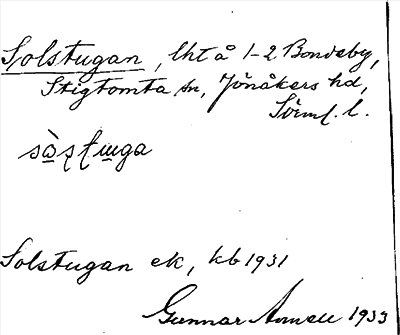 Solstugan, lht å 1-2 Bondeby,
Stigtomta sn, Jönåkers hd,
Sörml. l.
sòʂʈɯga
Solstugan ek, kb 1931
Gunnar 1933